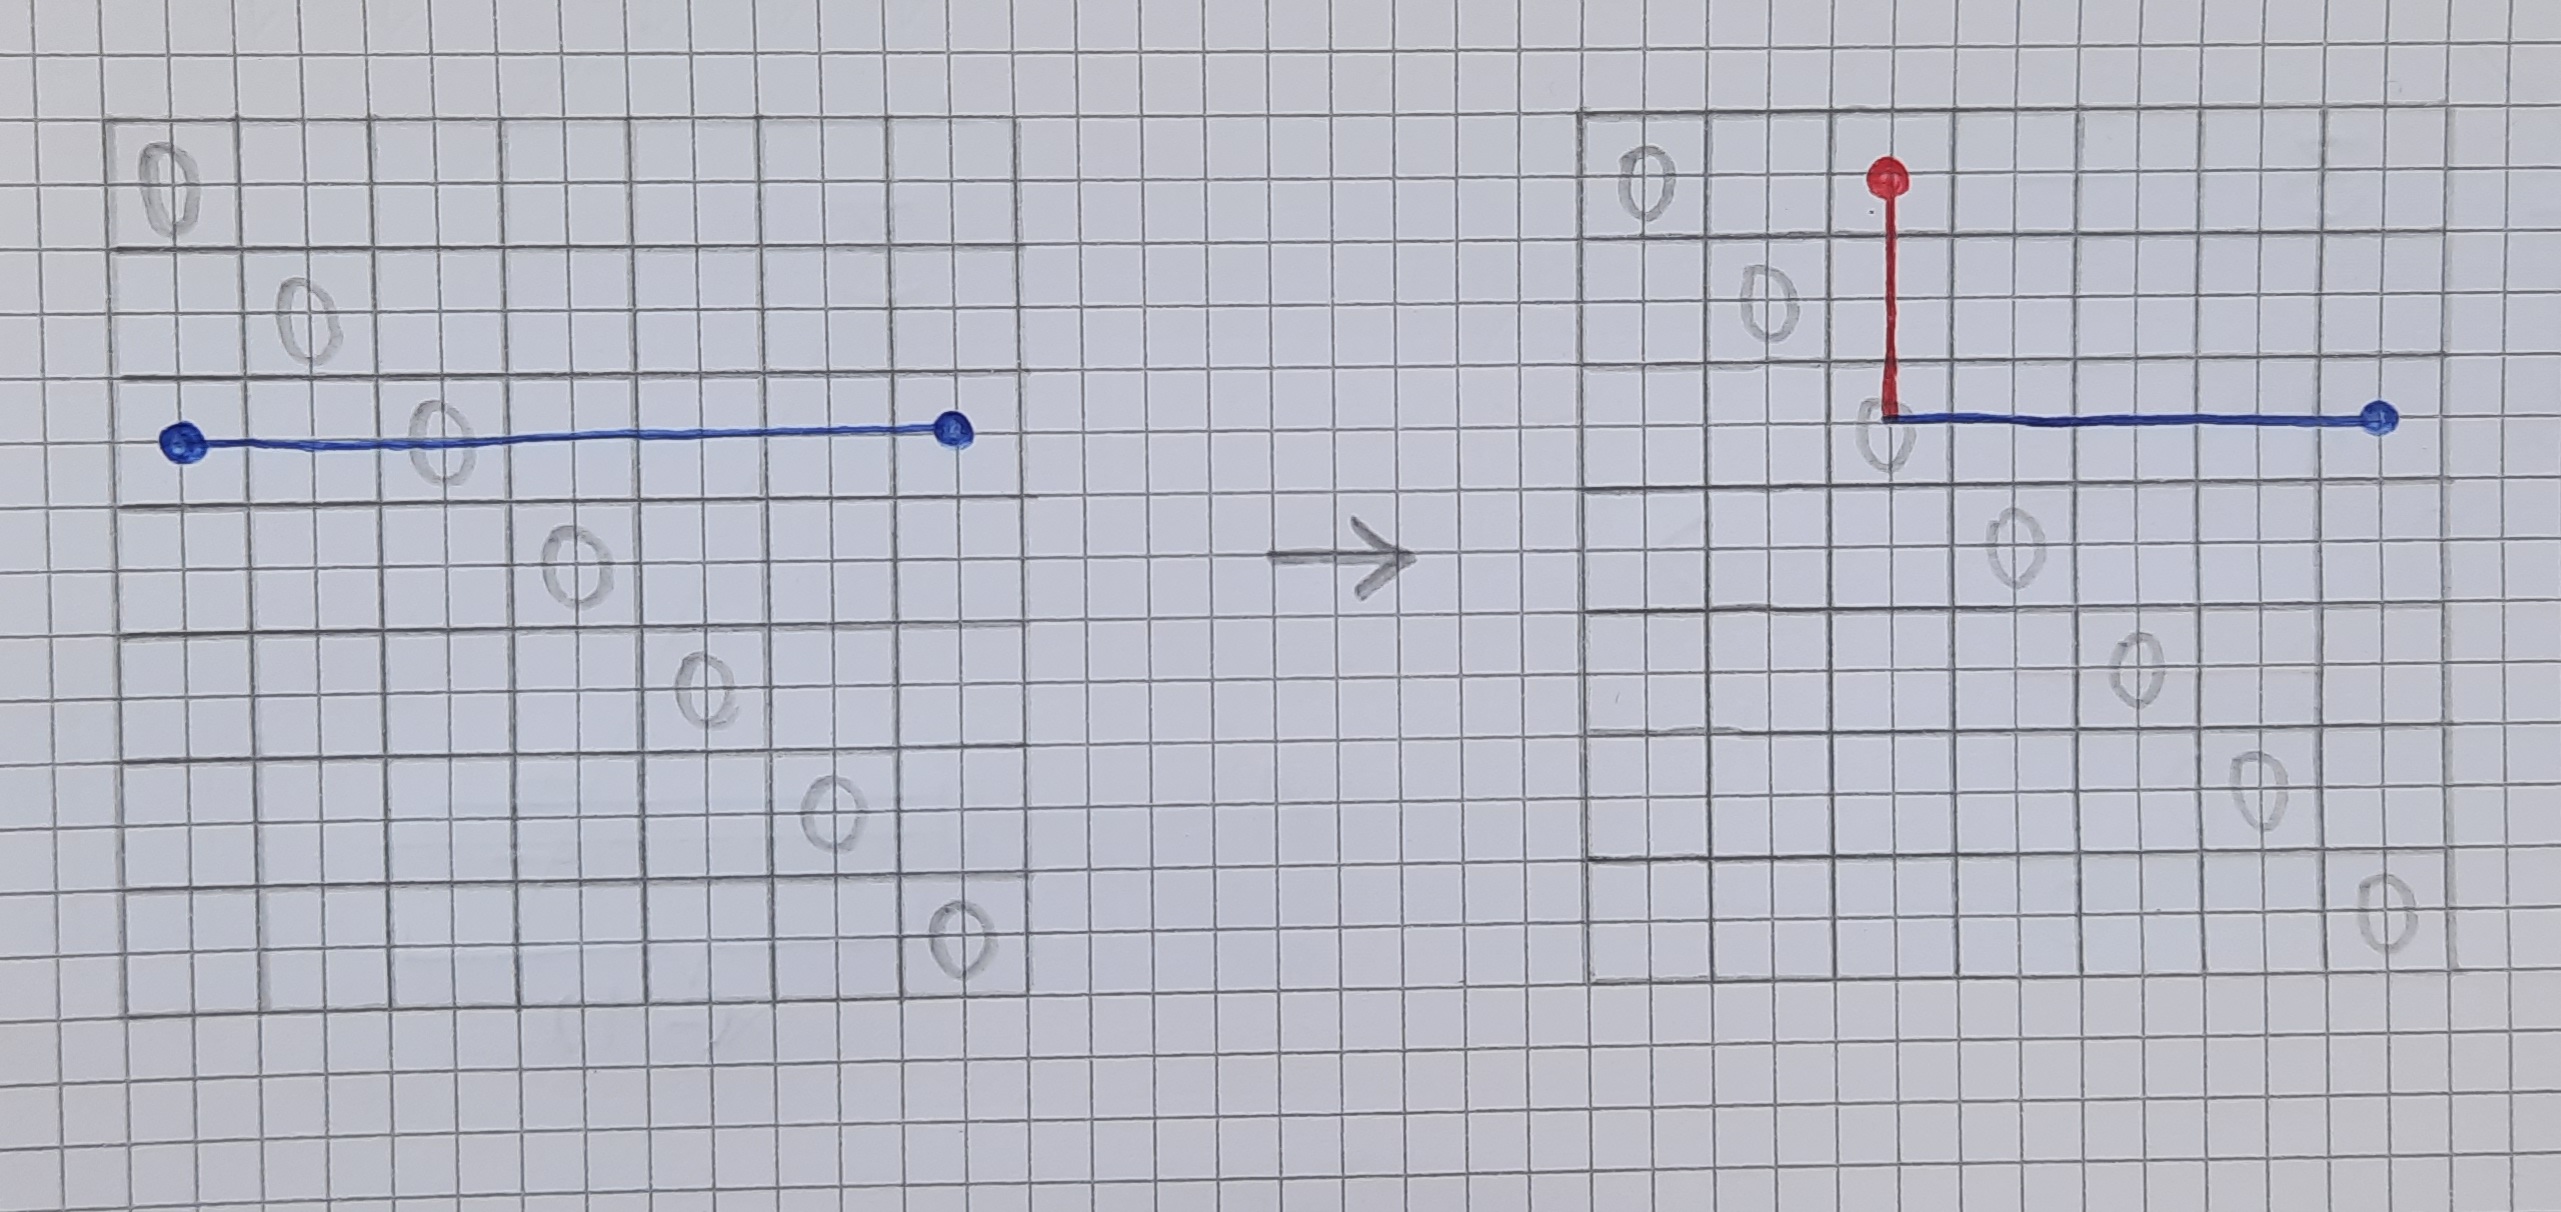 0 0
0 0
0 → 0
0 0
0 0
0 0
0 0